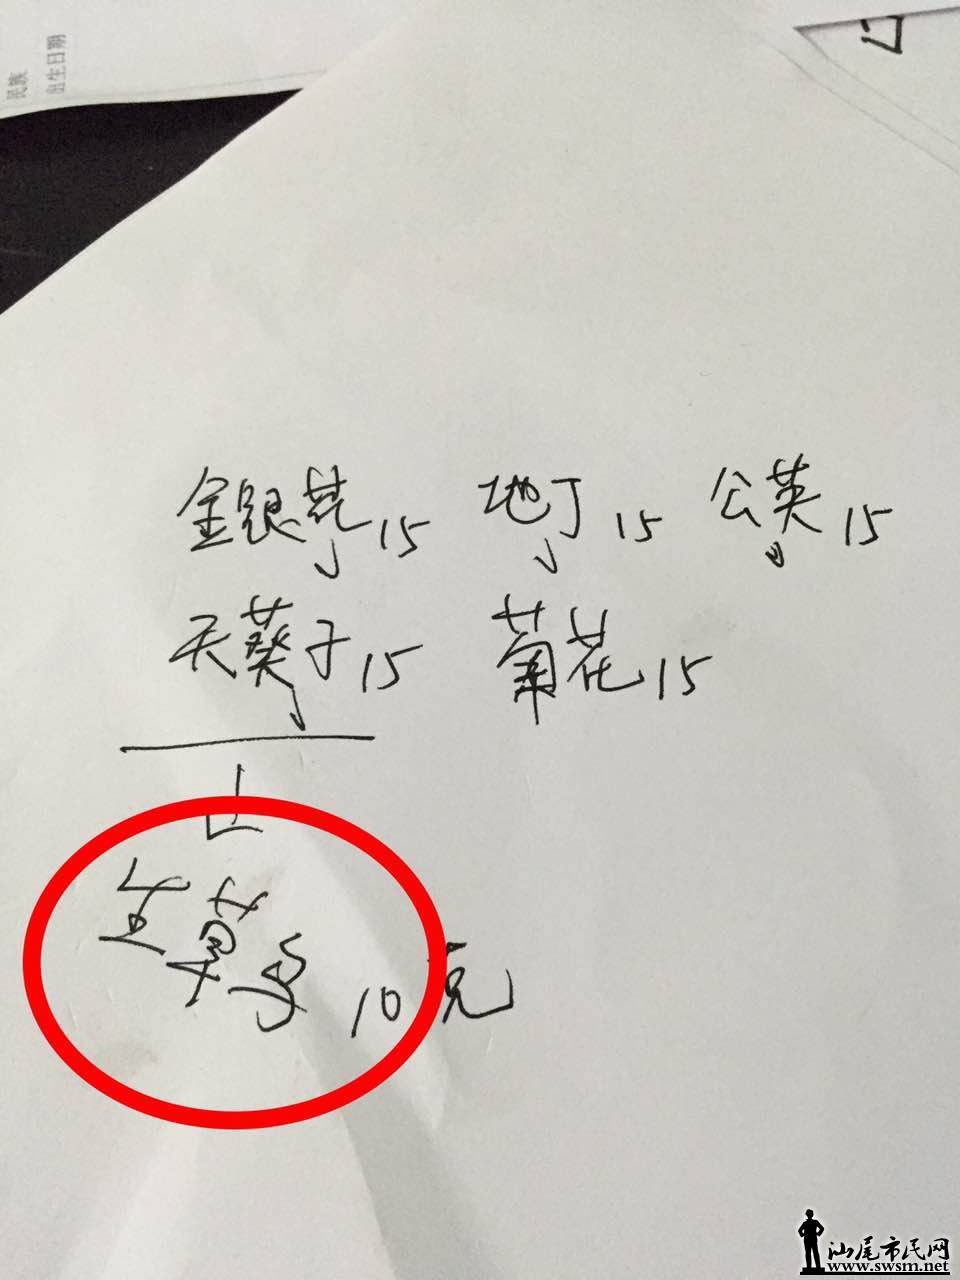 民族
出生日期
金銀花15 地丁15 公英15
天葵子15 菊花15
生草
10克
汕尾市民网
www.swsm.net